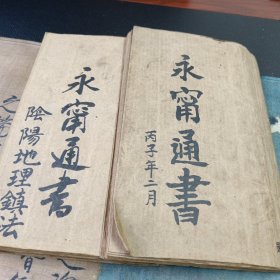 永甯通書
丙子年二月
永甯通書
陰陽地理鎮法